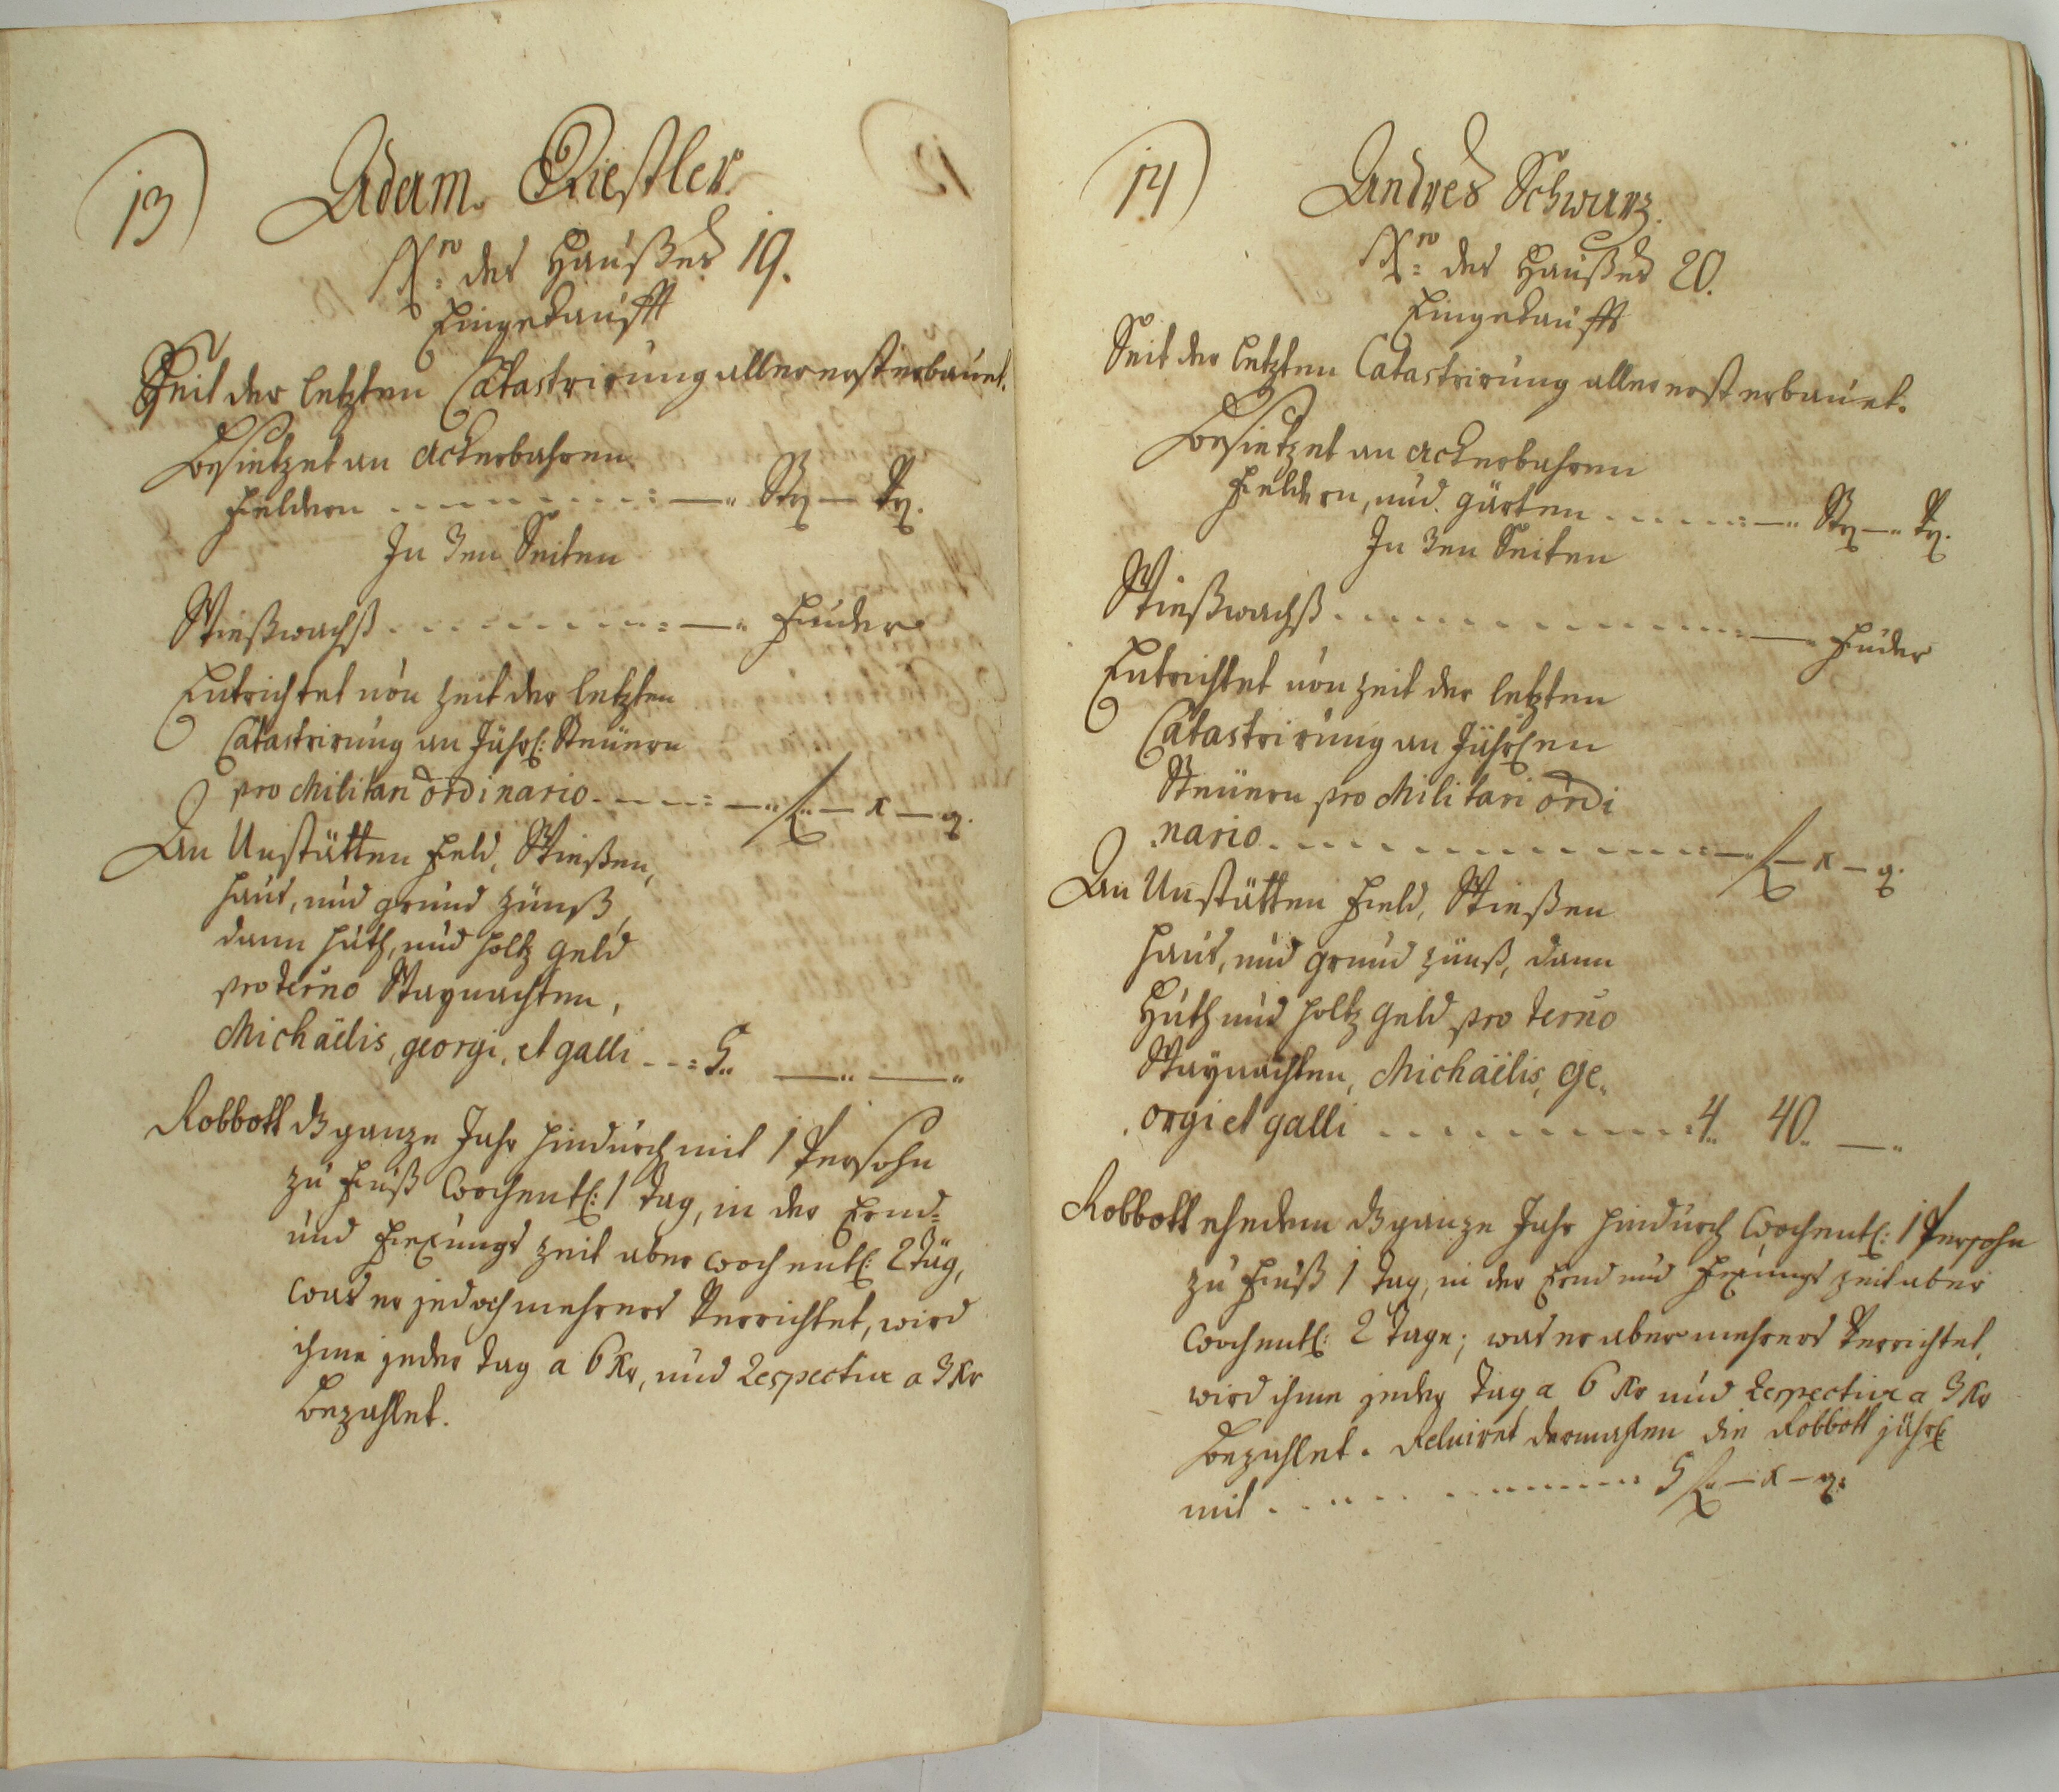 13
Adam Riestler.
Nro: des Haußes 19.
Eingekaufft
Seit der letzten Catastrirung allererst erbauet.
Besietzet an ackerbahren
Feldern — Str — Vr.
In 3en Seiten
Wießwachß — Fuder
Entrichtet von Zeit der letzten
Catastrirung an Jährl: Steüern
pro Militari ordinario — f — x — q.
An Unstätten Feld, Wießen,
Haus, und grund Zünß,
dann Huth, und Holtz geld
pro terno Waynachten,
Michaëlis, georgi, et galli 5.. —.. —..
Robbott ds ganze Jahr hindurch mit 1 Persohn
zu Fuß Wochentl: 1 tag, in der Ernd-
und Fexungs Zeit aber wochentl: 2 täg,
was er jedoch mehrers Verrichtet, wird
ihme jeder tag a 6 Kr, und Respective a 3 Kr
bezahlet.
14
Andres Schwarz.
Nro: des Haußes 20.
Eingekaufft
Seit der letzten Catastrirung allererst erbauet.
Besietzet an ackerbahren
Feldern, und gärten — Str — Vr.
In 3en Seiten
Wießwachß — Fuder
Entrichtet von Zeit der letzten
Catastrirung an Jährlen
Steüern pro Militari ordi
nario — f — x — q.
An Unstätten Field, Wießen
Haus, und grund Zünß, dann
Huth und Holtz geld pro terno
Waynachten, Michaëlis, Ge..
orgi et galli 4.. 40.. —..
Robbott ehedem ds ganze Jahr hindurch Wochentl: 1 Persohn
zu Fuß 1 tag, in der Ernd und Fexungs Zeit aber
Wochentl: 2 tage; was er aber mehrers Verrichtet,
wird ihme jeder tag a 6 Kr und Respective a 3 Kr
bezahlet. Reluiret dermahlen die Robbott jährl
mit 5 f — x — q: